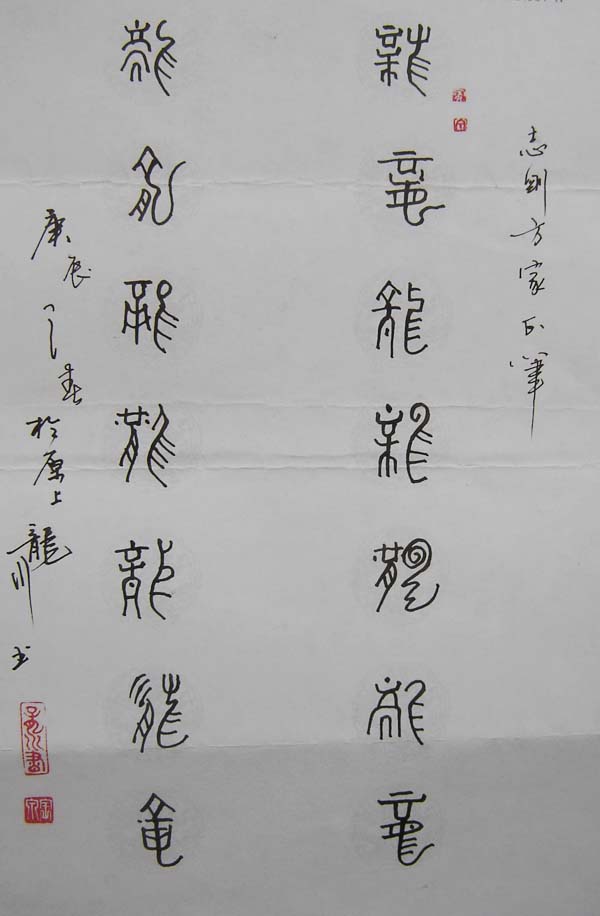 志 方家正筆
龍龍龍龍龍龍龍
龍龍龍龍龍龍龍
庚辰之春於原上龍川书